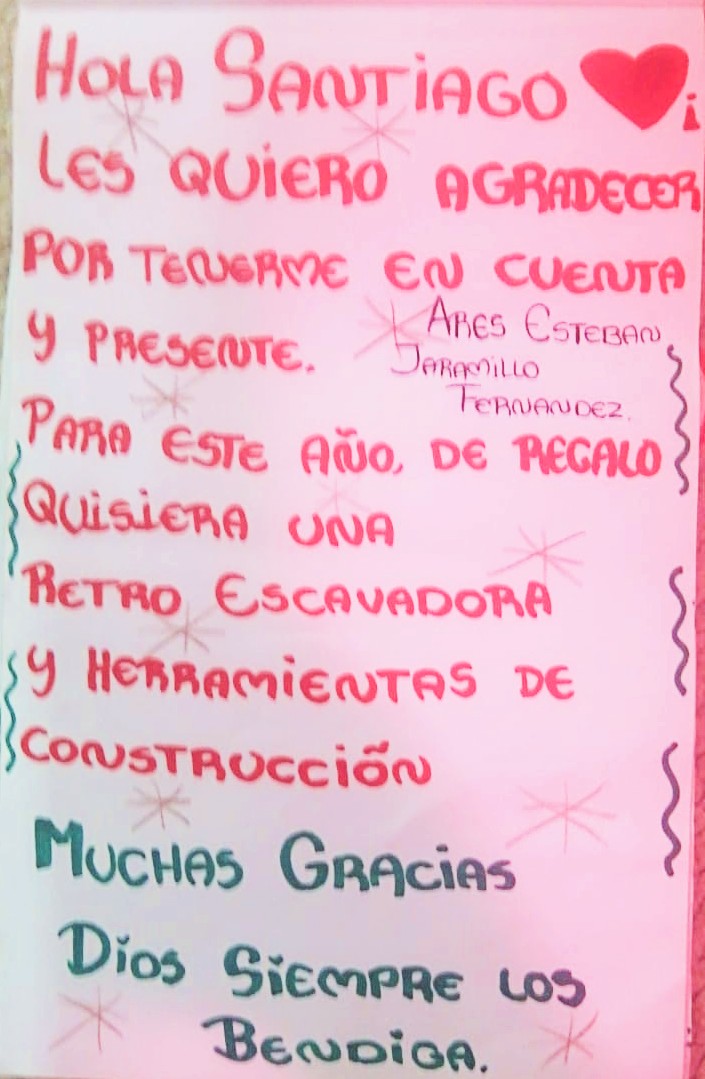 HOLA SANTIAGO ❤ ¡
LES QUIERO AGRADECER
POR TENERME EN CUENTA
Y PRESENTE.
ARES ESTEBAN
JARAMILLO
FERNANDEZ.
PARA ESTE AÑO, DE REGALO
QUISIERA UNA
RETRO ESCAVADORA
Y HERRAMIENTAS DE
CONSTRUCCIÓN
MUCHAS GRACIAS
DIOS SIEMPRE LOS
BENDIGA.